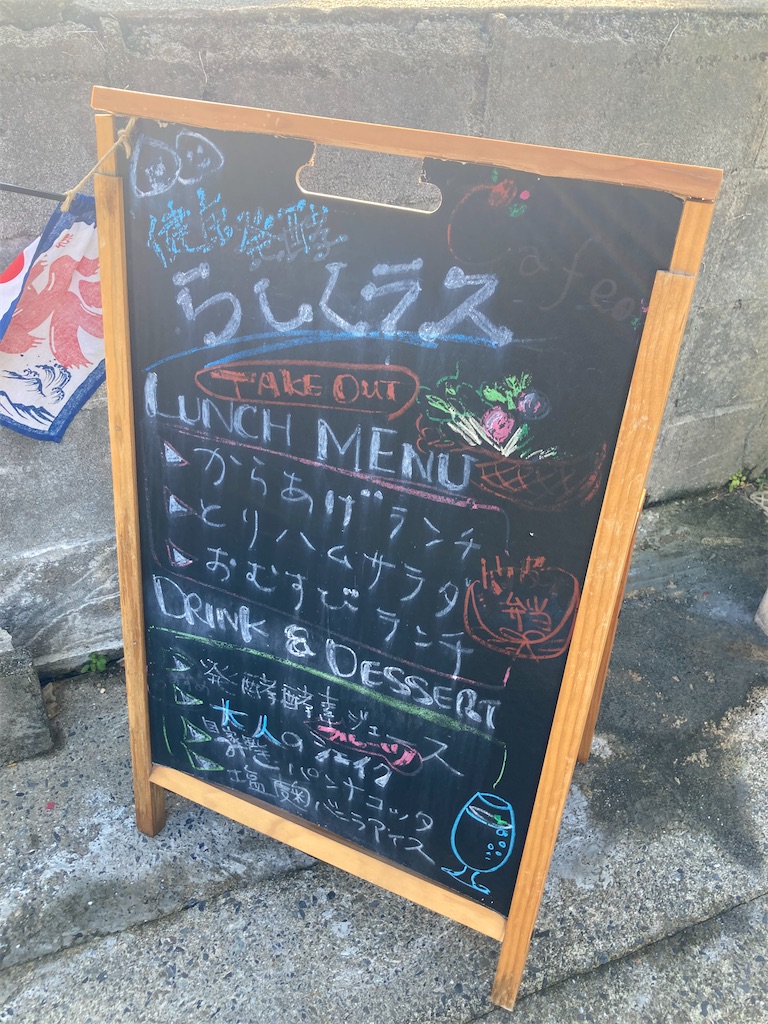 健康発酵
Cafe
らしくラス
TAKE OUT
LUNCH MENU
からあげランチ
とりハムサラダ
おむすびランチ
弁当
DRINK & DESSERT
発酵酵素ジュース
大人のシェイク
自家製パンナコッタ
塩麹バニラアイス